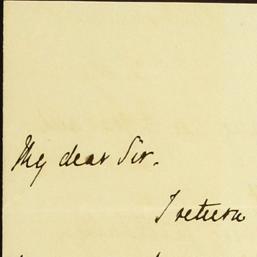 My dear Sir.
I return